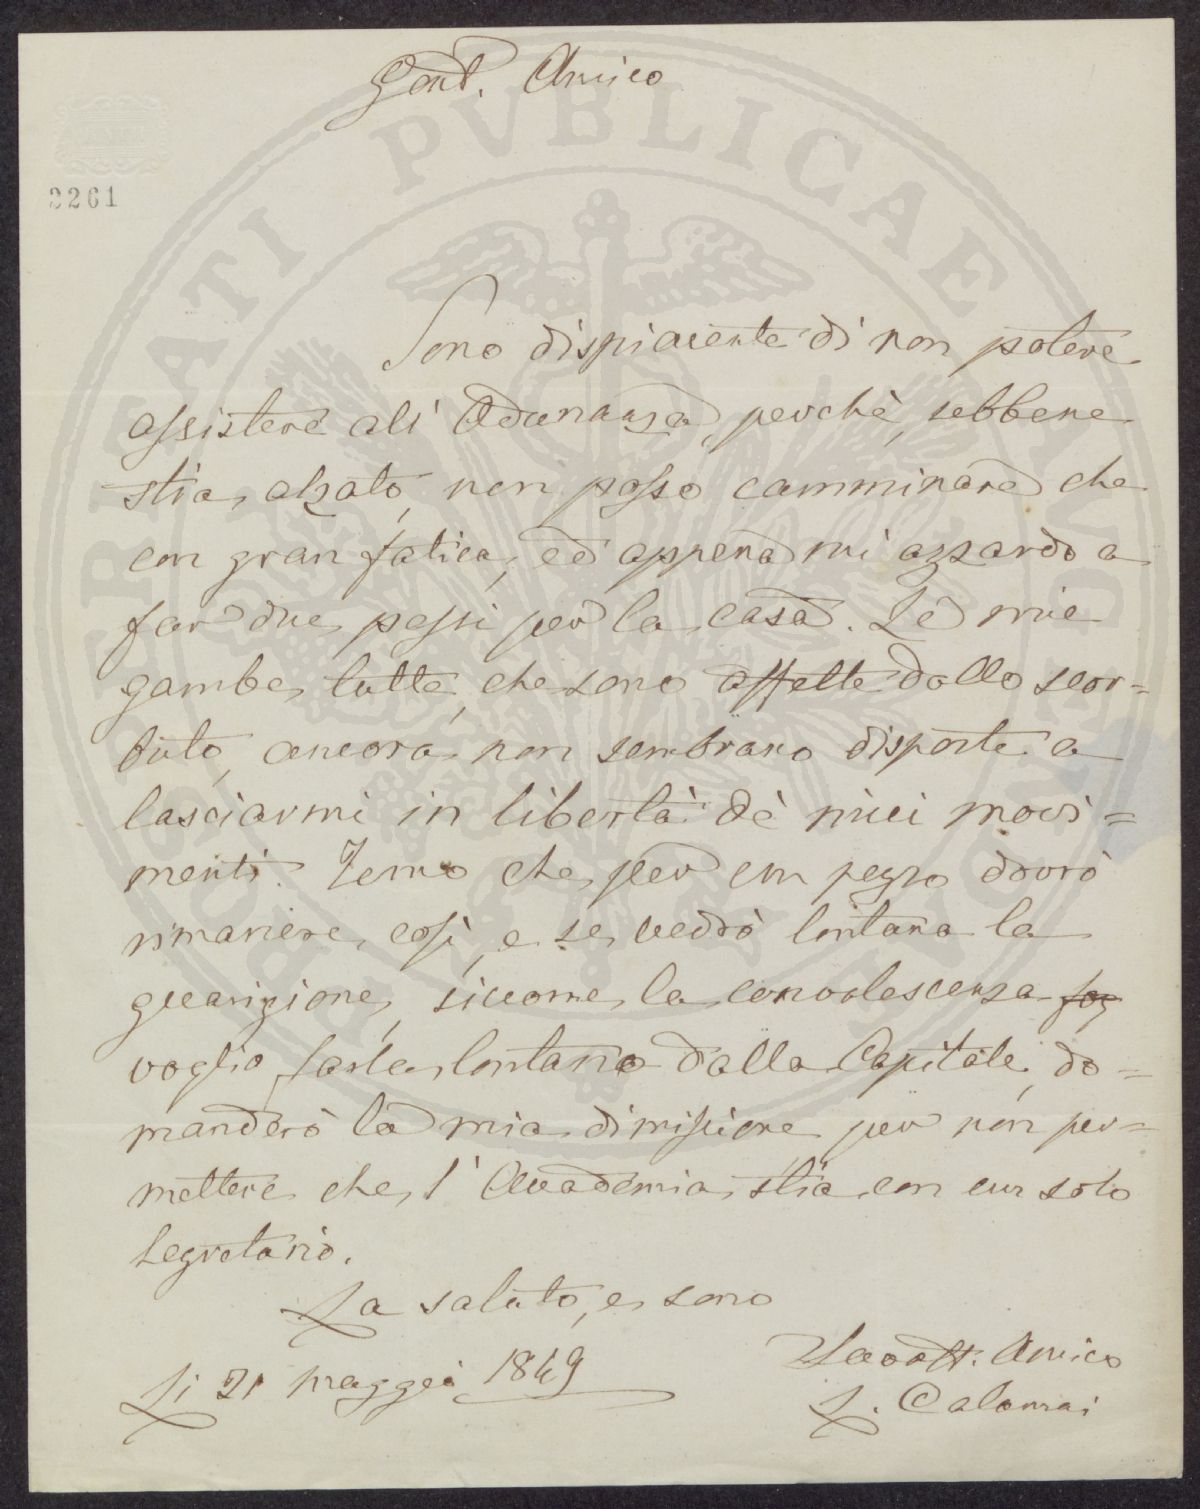 Gent. Amico
2261
Sono dispiacente di non potere
assistere all' Adunanza, perchè, sebbene
stia alzato, non posso camminare che
con gran fatica, ed appena mi azzardo a
far due passi per la casa. Le mie
gambe tutte, che sono affette dallo scor=
buto, ancora non sembrano disposte a
lasciarmi in libertà de' miei movi=
menti. Temo che per un pezzo dovrò
rimanere così, e se vedrò lontana la
guarigione, siccome la convalescenza
voglio farla lontano dalla Capitale, do=
manderò la mia dimissione per non per=
mettere che l' Accademia stia con un solo
Segretario.
La saluto, e sono
Li 21 maggio 1849
Amico
L. Calamai
PROSPERITATI PVBLICAE AVGENDAE